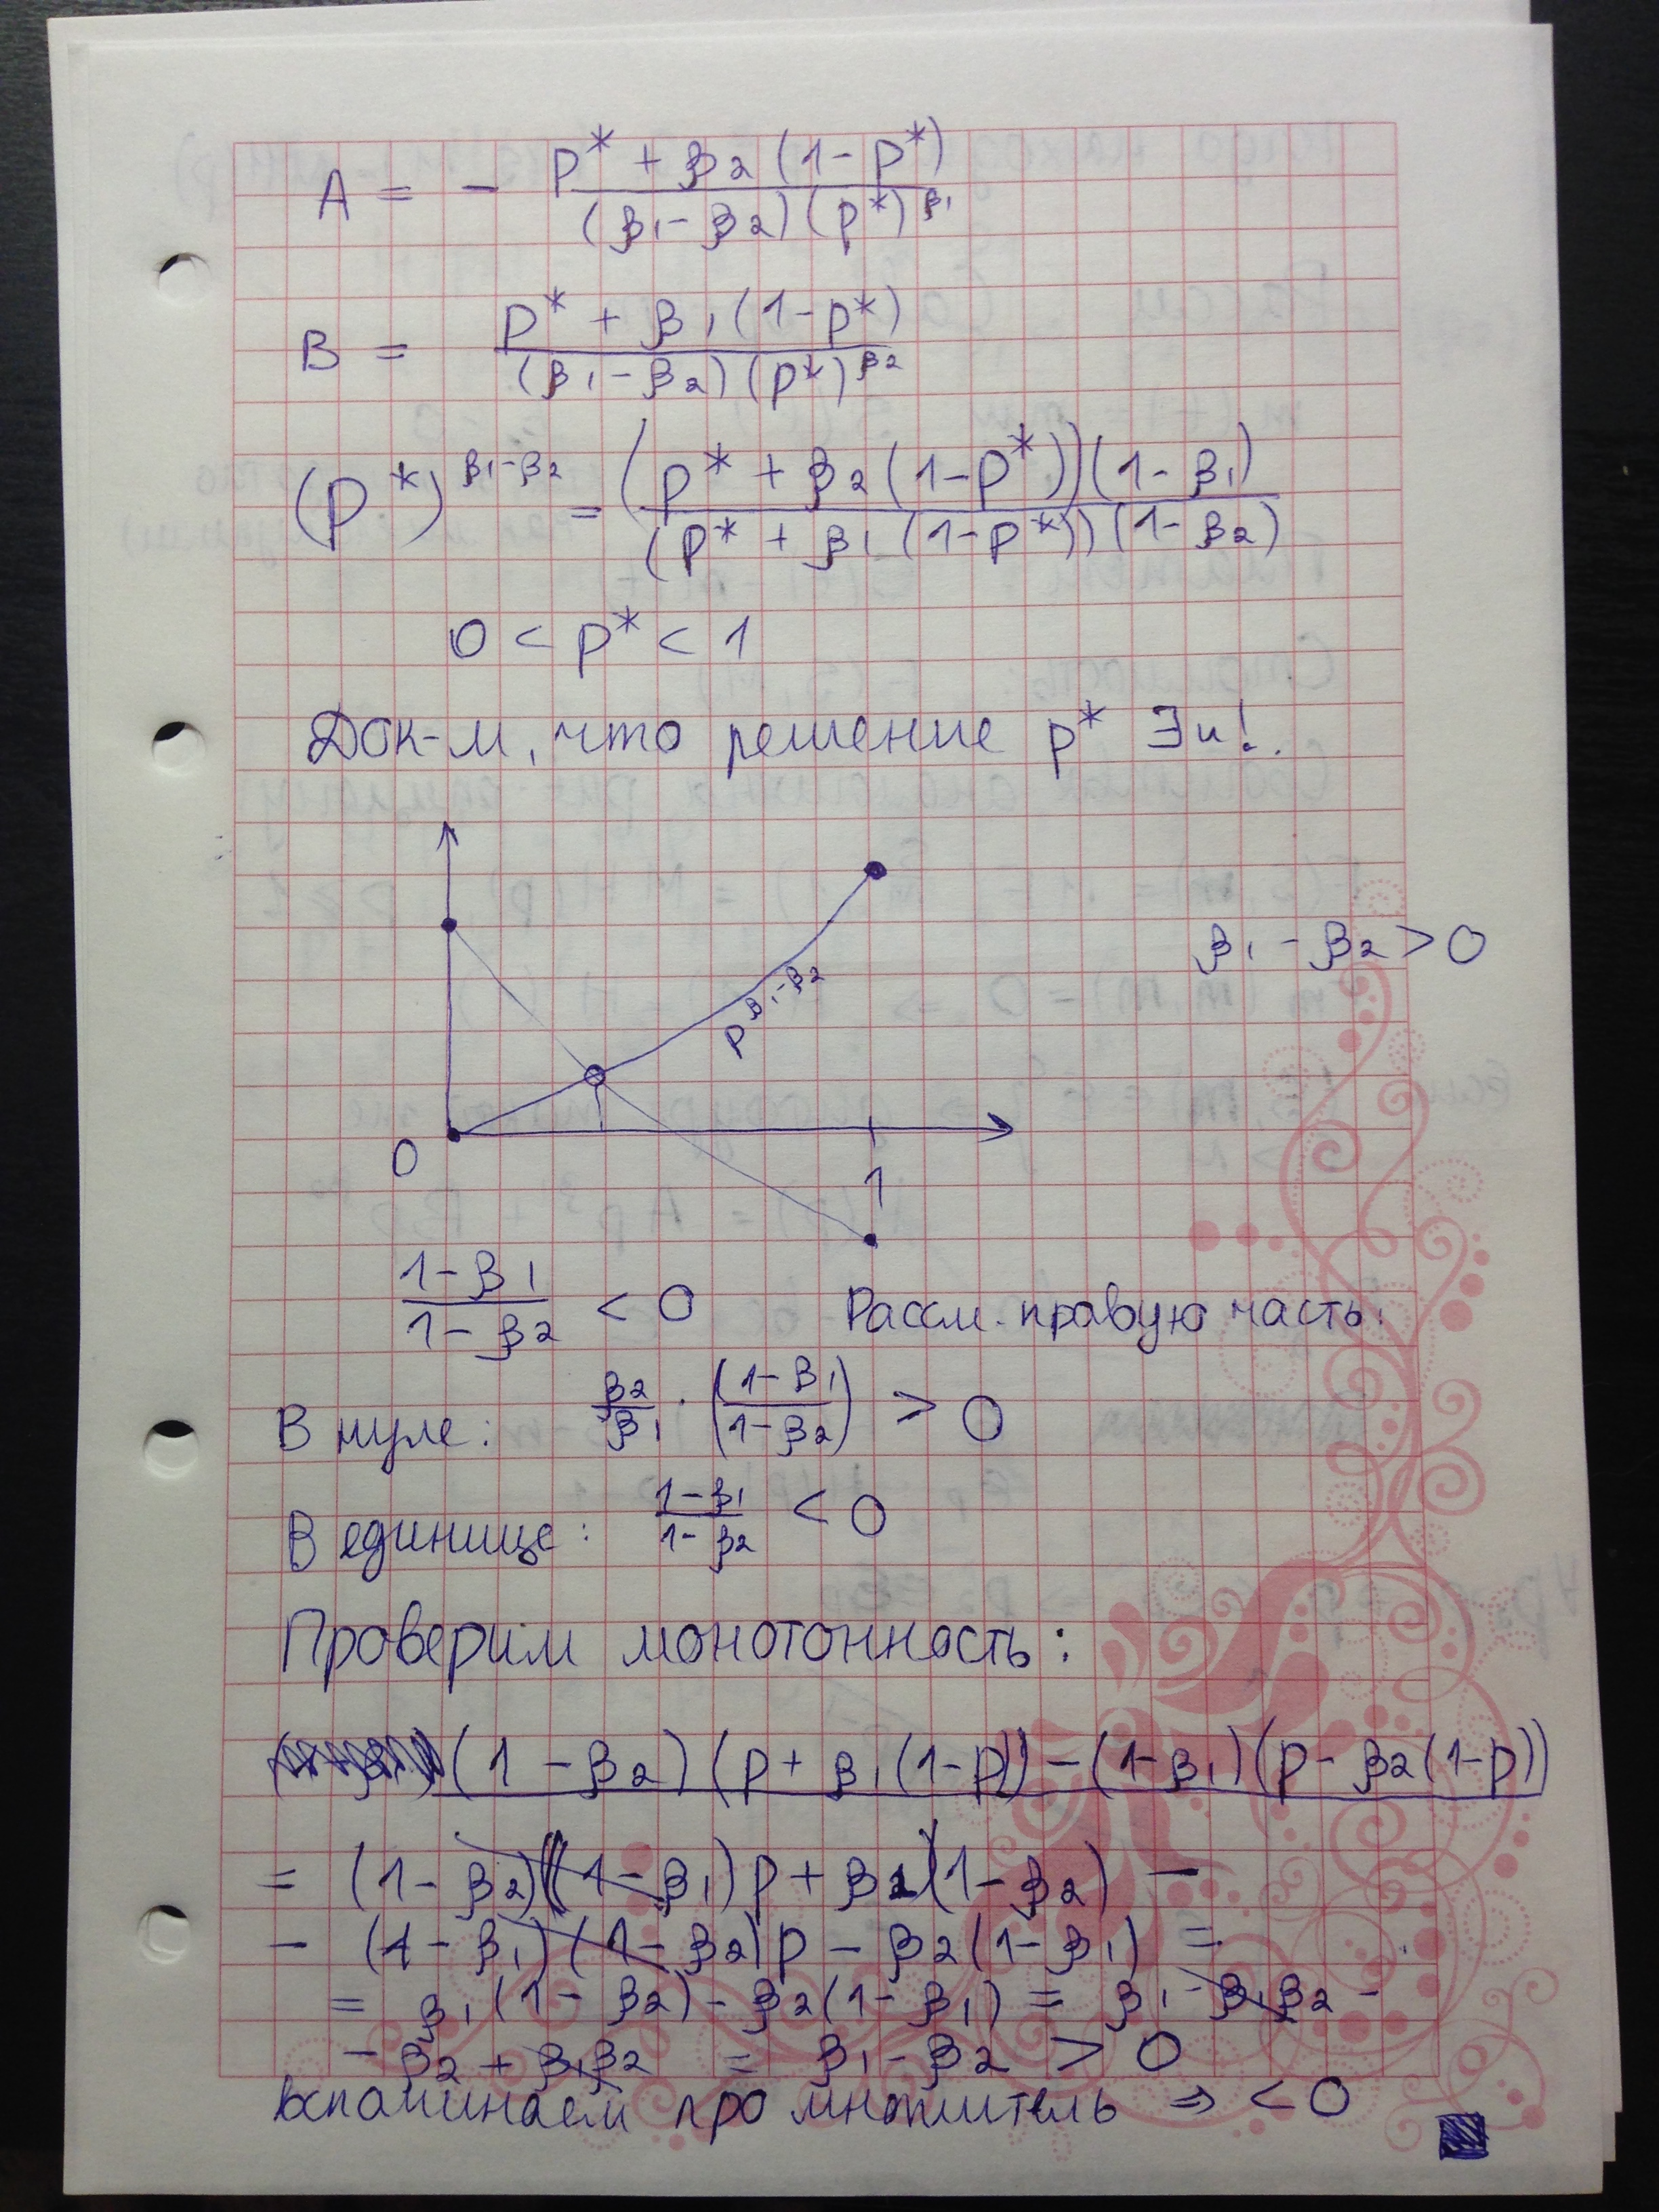 A = - (p* + β₂(1-p*)) / ((β₁-β₂)(p*)^β₁)
B = (p* + β₁(1-p*)) / ((β₁-β₂)(p*)^β₂)
(p*)^(β₁-β₂) = (p* + β₂(1-p*))(1-β₁) / ((p* + β₁(1-p*))(1-β₂))
0 < p* < 1
Док-м, что решение p* ∃ и !.
β₁ - β₂ > 0
p^(β₁-β₂)
0
1
(1-β₁)/(1-β₂) < 0 Рассм. правую часть:
В нуле: β₂/β₁ · ((1-β₁)/(1-β₂)) > 0
В единице: (1-β₁)/(1-β₂) < 0
Проверим монотонность:
(1-β₂)(p+β₁(1-p)) - (1-β₁)(p-β₂(1-p))
= (1-β₂)((1-β₁)p + β₁)(1-β₂) -
- (1-β₁)(1-β₂)p - β₂(1-β₁) =
= β₁(1-β₂) - β₂(1-β₁) = β₁ - β₁β₂ -
- β₂ + β₁β₂ = β₁ - β₂ > 0
вспоминаем про множитель ⇒ < 0